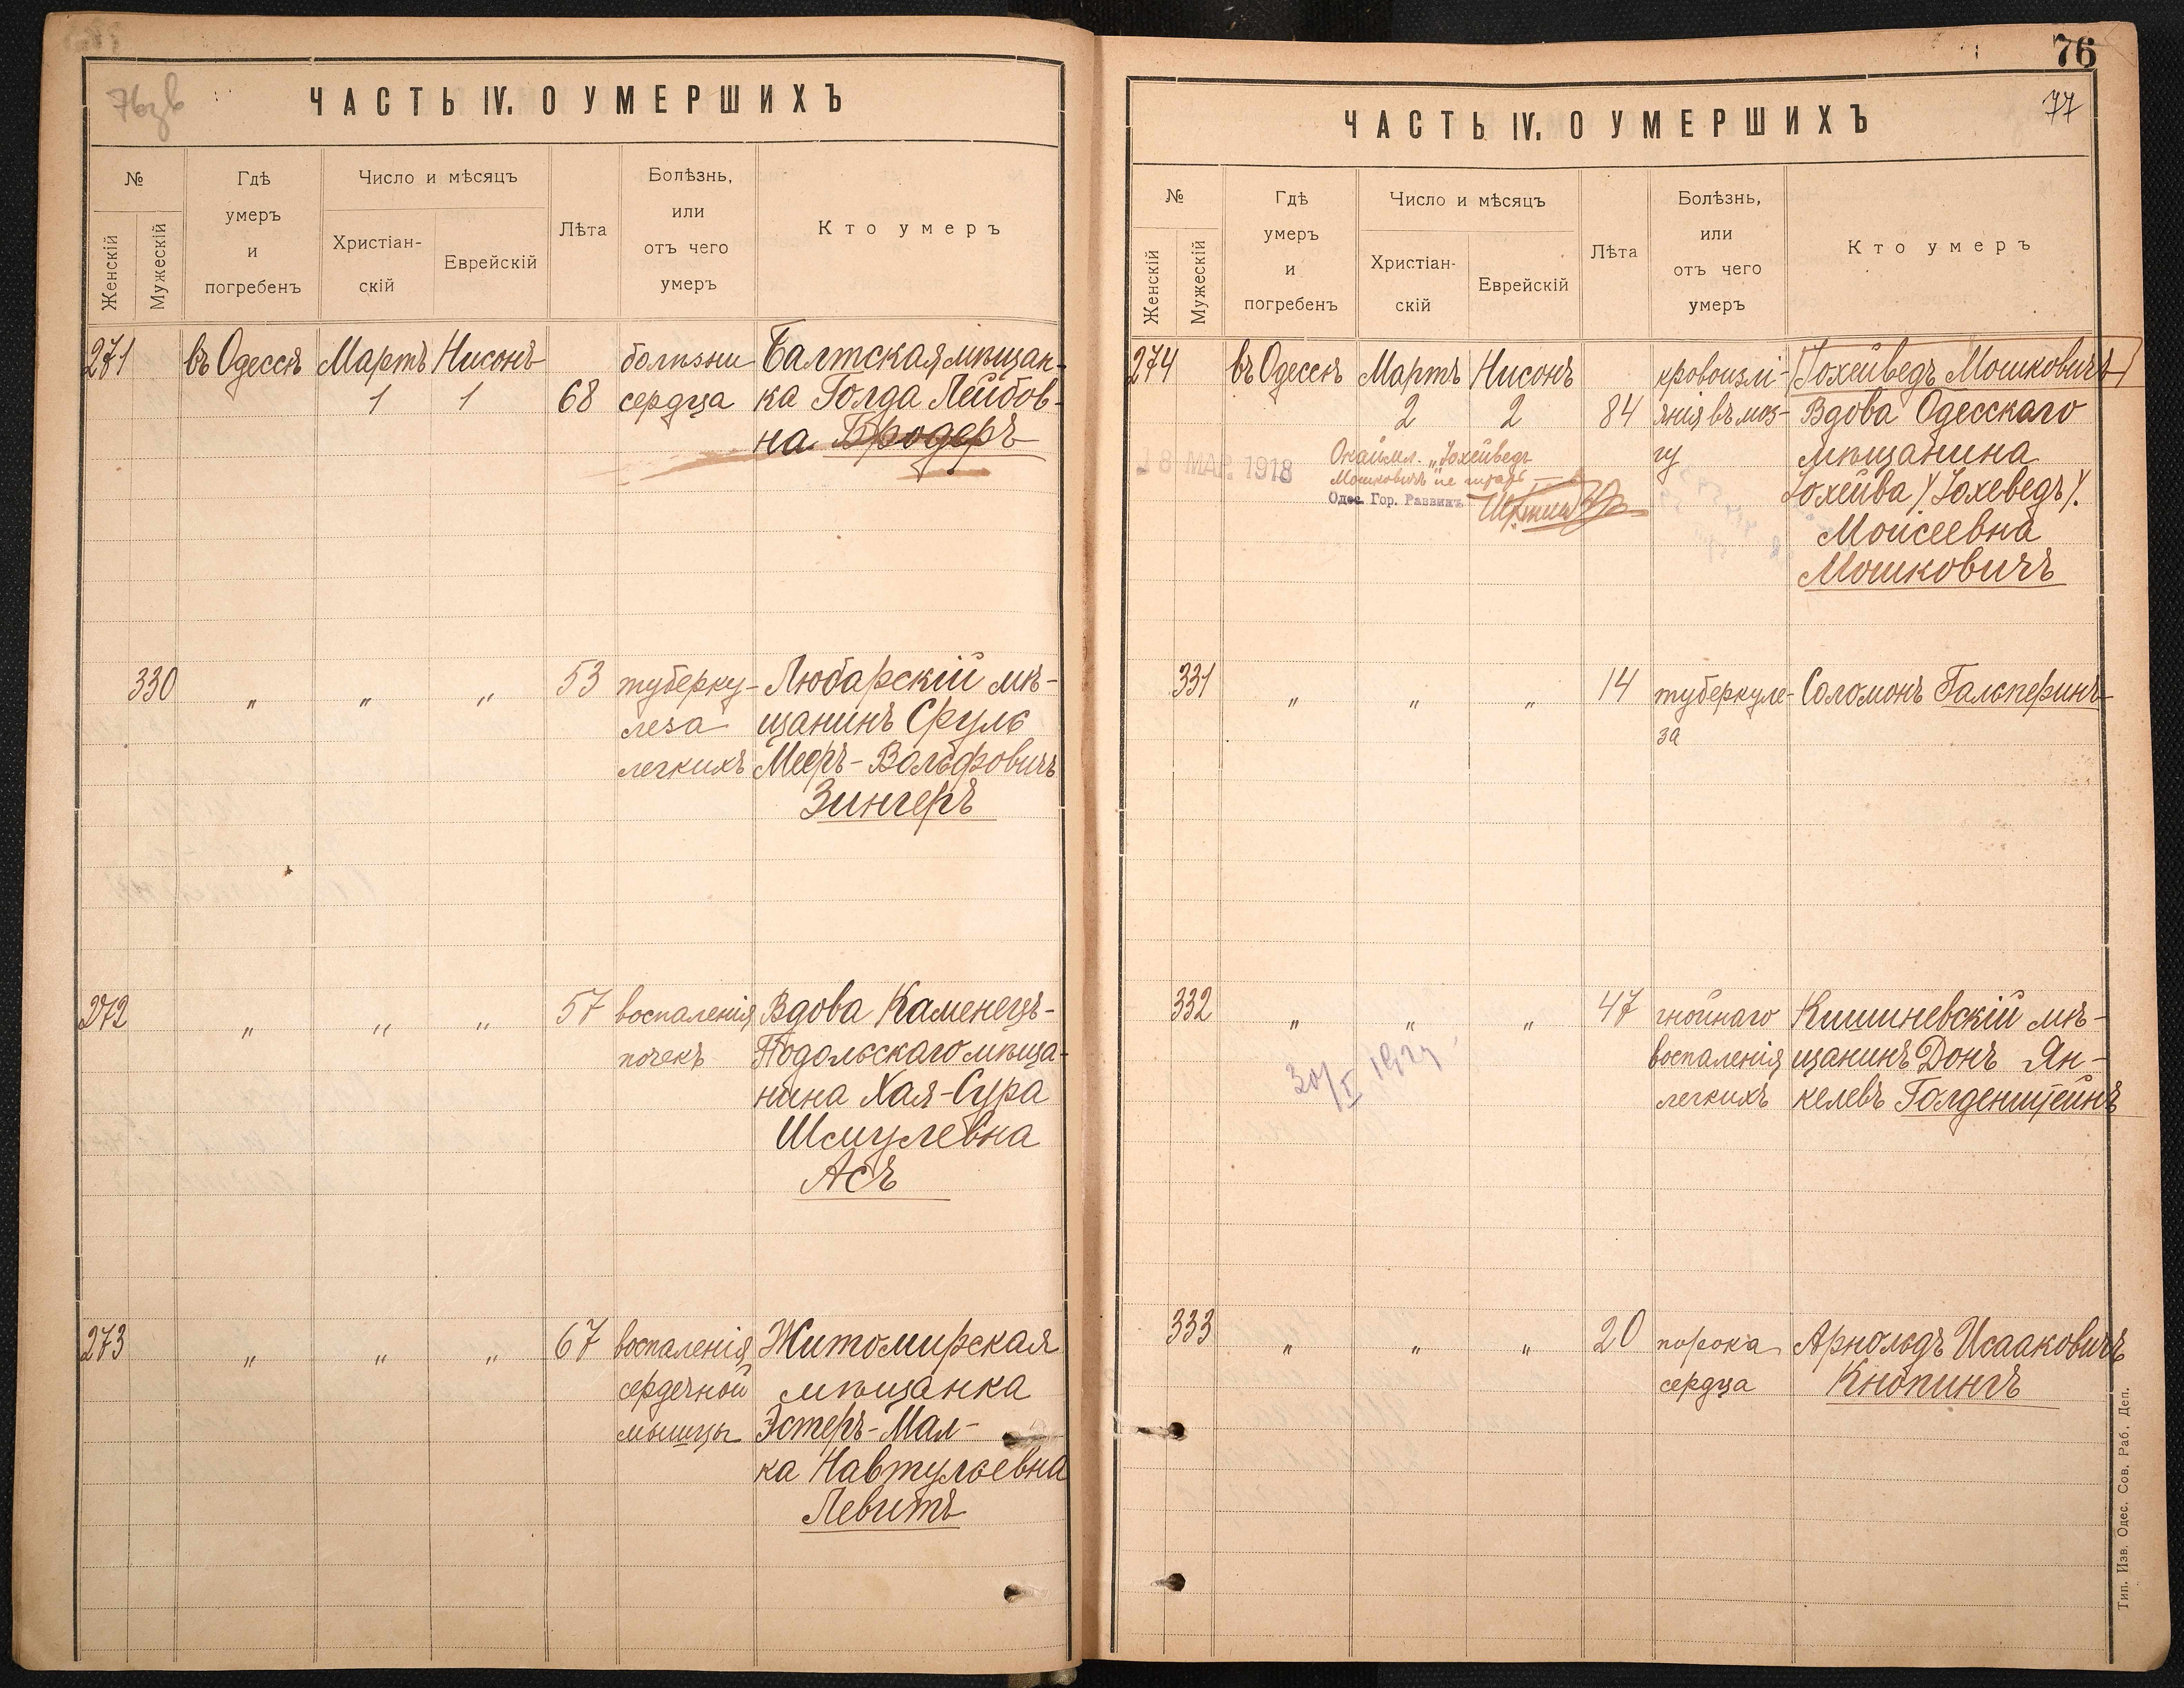 ЧАСТЬ IV. О УМЕРШИХЪ
№
Женскій
Мужескій
Гдѣ
умеръ
и
погребенъ
Число и мѣсяцъ
Христіан-
скій
Еврейскій
Лѣта
Болѣзнь,
или
отъ чего
умеръ
Кто умеръ
271
въ Одессѣ
Мартъ
1
Нисонъ
1
68
болѣзни
сердца
Балтская мѣщан-
ка Голда Лейбов-
на Бродеръ
330
"
"
"
53
туберку-
леза
легкихъ
Любарскій мѣ-
щанинъ Сруль
Мееръ-Вольфовичъ
Зингеръ
272
"
"
"
57
воспаленія
почекъ
Вдова Каменецъ-
Подольскаго мѣща-
нина Хая-Сура
Шмулевна
Асъ
273
"
"
"
67
воспаленія
сердечной
мышцы
Житомирская
мѣщанка
Эстеръ-Мал-
ка Навтульевна
Левитъ
76
77
ЧАСТЬ IV. О УМЕРШИХЪ
№
Женскій
Мужескій
Гдѣ
умеръ
и
погребенъ
Число и мѣсяцъ
Христіан-
скій
Еврейскій
Лѣта
Болѣзнь,
или
отъ чего
умеръ
Кто умеръ
274
въ Одессѣ
Мартъ
2
Нисонъ
2
84
кровоизлі-
янія въ моз-
гу
Іохейведъ Мошковичъ
Вдова Одесскаго
мѣщанина
Іохейва /Іохеведъ/.
Моисеевна
Мошковичъ
18 МАР. 1918
Окаймл. „Іохейведъ
Мошковичъ" не
Одес. Гор. Раввинъ
331
"
"
"
14
туберкуле-
за
Соломонъ Гальперинъ
332
"
"
"
47
гнойнаго
воспаленія
легкихъ
Кишиневскій мѣ-
щанинъ Донъ Ян-
келевъ Голденштейнъ
333
"
"
"
20
порока
сердца
Арнольдъ Исааковичъ
Кнопингъ
Тип. Изв. Одес. Сов. Раб. Деп.